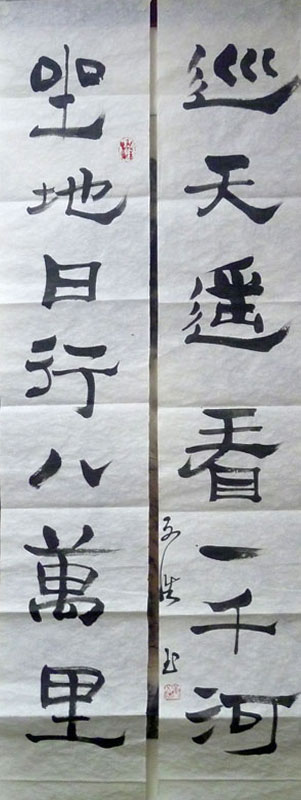 坐地日行八萬里
巡天遥看一千河